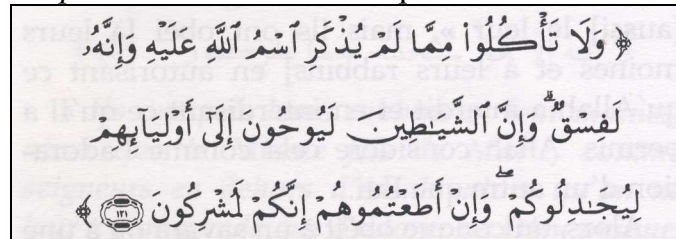 ﴿ وَلَا تَأْكُلُوا۟ مِمَّا لَمْ يُذْكَرِ ٱسْمُ ٱللَّهِ عَلَيْهِ وَإِنَّهُۥ
لَفِسْقٌ ۗ وَإِنَّ ٱلشَّيَٰطِينَ لَيُوحُونَ إِلَىٰٓ أَوْلِيَآئِهِمْ
لِيُجَٰدِلُوكُمْ ۖ وَإِنْ أَطَعْتُمُوهُمْ إِنَّكُمْ لَمُشْرِكُونَ ١٢١ ﴾